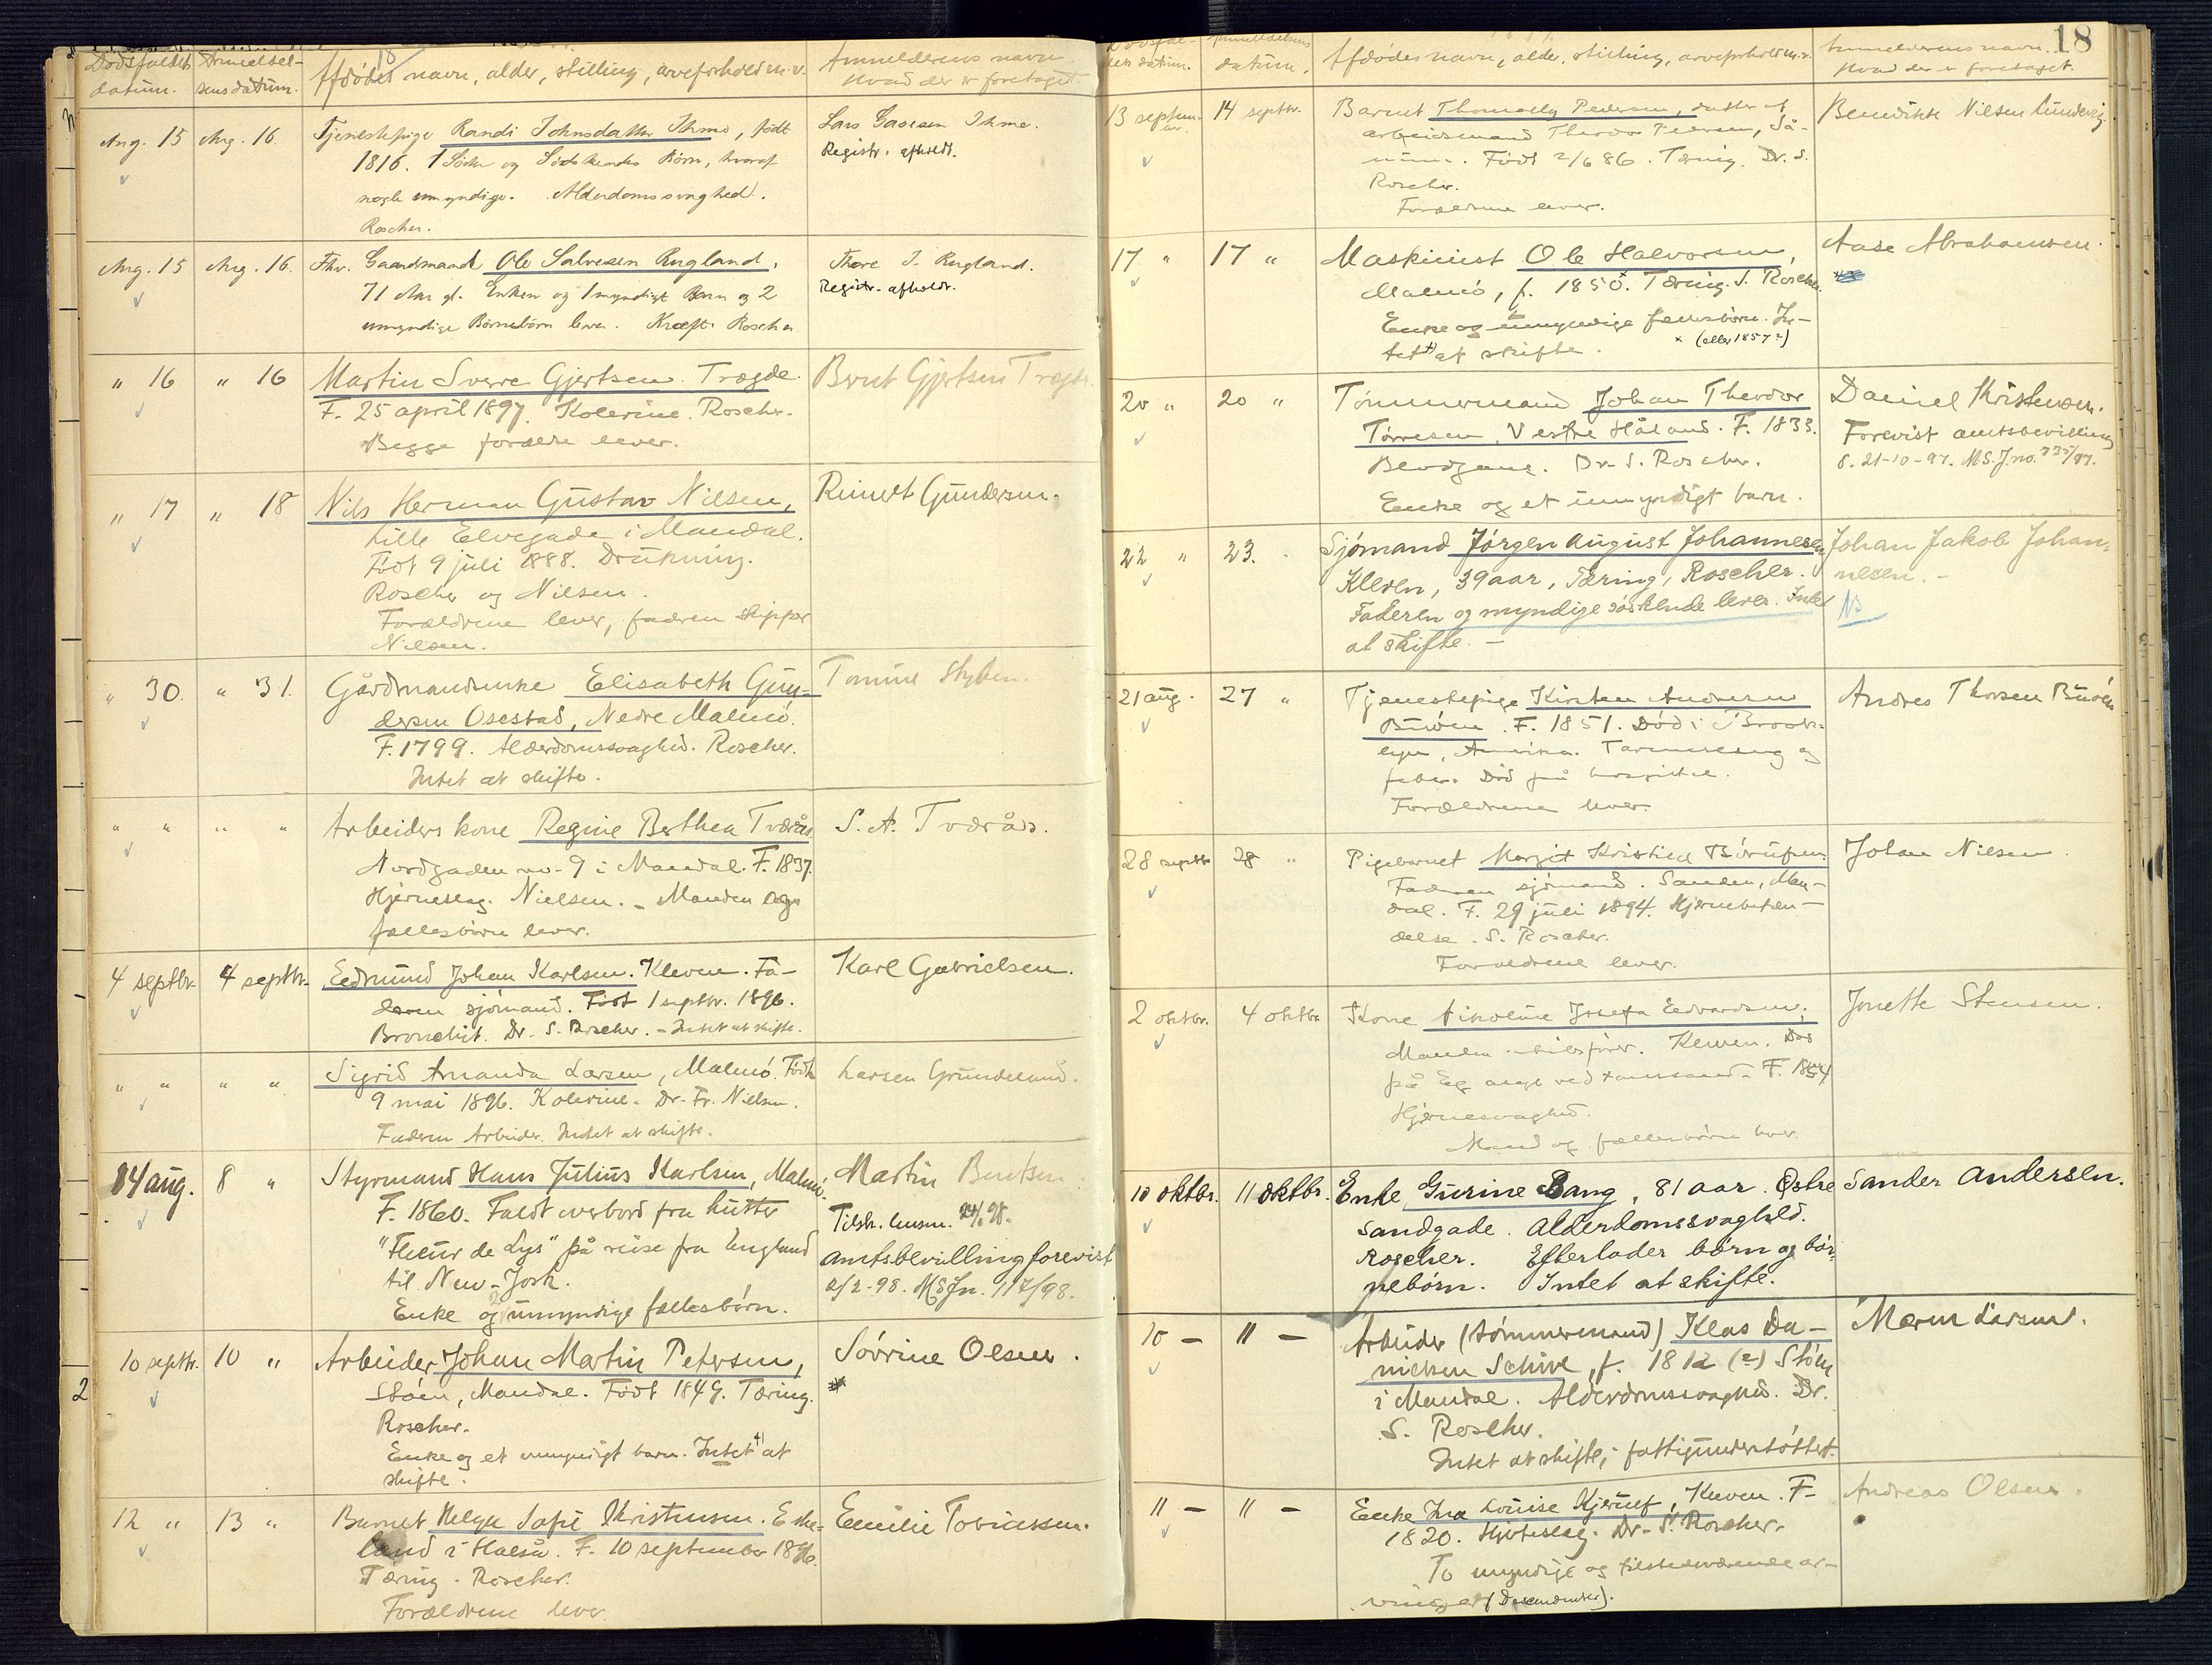 Dødsfaldets datum.
Anmeldelsens datum.
Afdødes navn, alder, stilling, arveforhold m.v.
Anmelderens navn.
Hvad der er foretaget.
Aug. 15
Aug. 16.
Tjenestepige Randi Johnsdatter Ihme, født
1816. 1 Søster og Sødskendes Børn, hvoraf
nogle umyndige. Alderdomssvaghed.
Roscher.
Lars Ihme.
Registr. afholdt.
Aug. 15
Aug. 16.
Fhv. Gaardmand Ole Salvesen Rugland,
71 Aar gl. Enken og 1 myndigt Barn og 2
umyndige Børnebørn lever. Kræft. Roscher
Thore J. Rugland.
Registr. afholdt.
" 16
" 16
Martin Sverre Gjertsen. Tregde.
F. 25 april 1897. Kolerine. Roscher.
Begge forældre lever.
Bernt Gjertsen Tregde.
" 17
" 18
Nils Herman Gustav Nilsen,
Lille Elvegade i Mandal.
Født 9 juli 1888. Drukning.
Roscher og Nilsen.
Forældrene lever, faderen skipper
Nilsen.
Reinert Gundersen.
" 30.
" 31.
Gårdmandsenke Elisabeth Gun-
dersen Osestad, Nedre Malmø.
F. 1799. Alderdomssvaghed. Roscher.
Intet at skifte.
Tomine
" "
" "
Arbeiders kone Regine Berthea Tværås.
Nordgaden no. 9 i Mandal. F. 1837.
Hjerneslag. Nielsen. - Manden og
fællesbørn lever.
S. A. Tværås.
4 septbr.
4 septbr.
Edmund Johan Karlsen. Kleven. Fa-
deren sjømand. Født 1 septbr. 1896.
Bronchit. Dr. S. Roscher. - Intet at skifte.
Karl Gabrielsen.
" "
" "
Sigrid Amanda Larsen, Malmø. Født
9 mai 1896. Kolerine. Dr. Fr. Nielsen.
Faderen Arbeider. Intet at skifte.
Larsen Grundesund.
14 aug.
8 "
Styrmand Hans Julius Karlsen, Malmø.
F. 1860. Faldt overbord fra kutter
"Fleur de Lys" på reise fra England
til New-York.
Enke og 2 umyndige fællesbørn.
Martin Bentsen.
Tilsk. lensm. 24/1 98.
Amtsbevilling forevist
2/2-98. MSJn. 117/98.
10 septbr.
10 "
Arbeider Johan Martin Petersen,
Støen, Mandal. Født 1849. Tæring.
Roscher.
Enke og et umyndigt barn. Intet at
skifte.
Søvrine Olsen.
12 "
13 "
Barnet Helga Sofie Kristensen. Eske-
land i Halså. F. 10 september 1896.
Tæring. Roscher.
Forældrene lever.
Emilie Tobiassen.
18
Dødsfal-
dets datum.
Anmeldelsens
datum.
Afdødes navn, alder, stilling, arveforhold m.v.
Anmelderens navn.
Hvad der er foretaget.
13 septem-
ber.
14 septbr.
Barnet Pedersen, datter af
arbeidsmand Theodor Pedersen, Så-
num. Født 2/6 86. Tæring. Dr. S.
Roscher.
Forældrene lever.
Benedikte Nilsen Lundevig.
17 "
17 "
Maskinist Ole Halvorsen,
Malmø, f. 1850. x Tæring. S. Roscher.
Enke og umyndige fællesbørn. In-
tet at skifte.
x (eller 1857?)
Aase Abrahamsen.
20 "
20 "
Tømmermand Johan Theodor
Tørresen, Vestre Håland. F. 1833.
Blodgang. Dr. S. Roscher.
Enke og et umyndigt barn.
Daniel Kristensen.
Forevist amtsbevilling
d. 21-10-97. M.S.J.no. 735/97.
22 "
23.
Sjømand Jørgen August Johannesen,
Kleven, 39 aar, Tæring, Roscher.
Faderen og myndige søskende lever. Intet
at skifte. -
Johan Jakob Johan-
nesen. -
21 aug.
27 "
Tjenestepige Kirsten Andersen
Buøen. F. 1851. Død i Brook-
lyn, Amerika. og
feber. Død på hospital.
Forældrene lever.
Andres Thorsen Buøen
28 septbr
28 "
Pigebarnet Margit Børufsen.
Faderen sjømand. Sanden, Man-
dal. F. 29 juli 1894. Hjernebeten-
delse. S. Roscher.
Forældrene lever.
Johan Nilsen.
2 oktbr.
4 oktbr.
Kone Nikoline Josefa Edvardsen,
Manden skibsfører. Kleven. Død
på Eg asyl ved Kristiansand. F. 1854
Hjernesvaghed.
Mand og fællesbørn lever.
Jonette Stensen.
10 oktbr.
11 oktbr.
Enke Gurine Bang, 81 aar. Østre
Sandgade. Alderdomssvaghed.
Roscher. Efterlader børn og bør-
nebørn. Intet at skifte.
Sander Andersen.
10 -
11 -
Arbeider (tømmermand) Klas Da-
nielsen Schive, f. 1812 (?) Støen
i Mandal. Alderdomssvaghed. Dr.
S. Roscher.
Intet at skifte, fattigunderstøttet.
Maren Larsen.
11 -
11 -
Enke Ina Louise Kjerulf, Kleven. F.
1820. Hjerteslag. Dr. S. Roscher.
To myndige og tilstedeværende ar-
vinger (Descendenter).
Andreas Olsen.